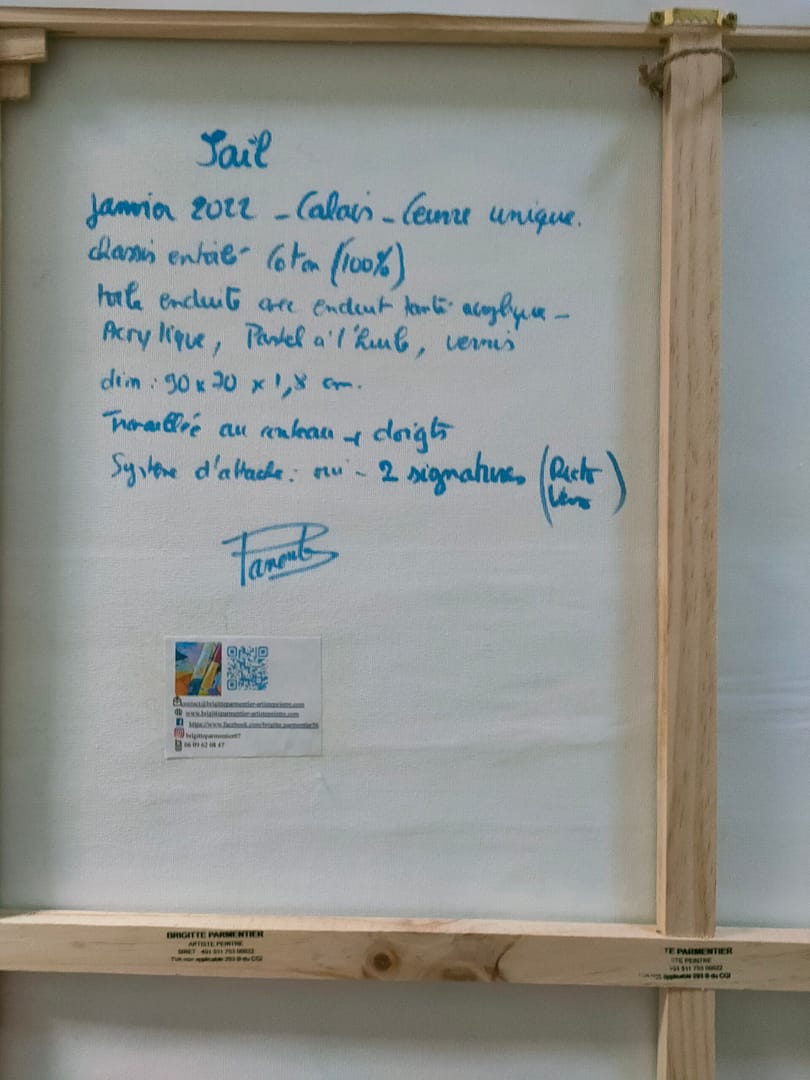 Jail
Janvier 2022 - Calais - Oeuvre unique.
chassis entoilé - Coton (100%)
toile enduite avec enduit teinté acrylique -
Acrylique, Pastel à l'huile, vernis
dim : 90 x 70 x 1,8 cm.
Travaillée au couteau et doigts
Système d'attache : oui - 2 signatures (Recto
Verso)
contact@brigitteparmentier-artistepeintre.com
www.brigitteparmentier-artistepeintre.com
https://www.facebook.com/brigitte.parmentier56
brigitteparmentier07
06 09 62 08 47
BRIGITTE PARMENTIER
ARTISTE PEINTRE
SIRET : 491 511 753 00022
TVA non applicable 293 B du CGI
TE PARMENTIER
STE PEINTRE
491 511 753 00022
applicable 293 B du CGI